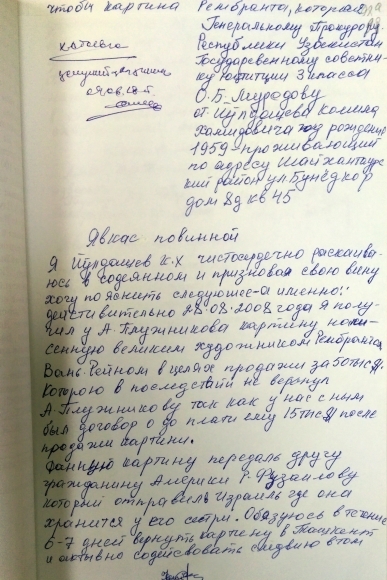 чтобы картина Рембранта, которая
Генеральному Прокурору
Республики Узбекистан
Государственному советни-
ку юстиции 3 класса
О.Б. Мурадову
от Юлдашева Комила
Хамидовича год рождения
1959 проживающий
по адресу Шайхантаур
ский район ул Бунёдкор
дом 8д кв 45
Явка с повинной
Я Юлдашев К.Х чистосердечно раскаива-
юсь в содеянном и признавая свою вину
хочу пояснить следующее-а именно:
действительно 28.08.2008 года я полу-
чил у А.Плужникова картину напи-
сенную великим художником Рембранта
Вань-Рейном в целях продажи за 50 тыс $.
Которою в последствии не вернул
А.Плужникову так как у нас с ним
был договор о до плати ему 15 тыс $ после
продажи картини.
Данную картину передаль другу
гражданину Америки Р.Фузаилову
который отправиль Израиль где она
хранится у его сестри. Обязуюсь в течение
6-7 дней вернуть картину в Ташкент
и активно содействовать следвию в том